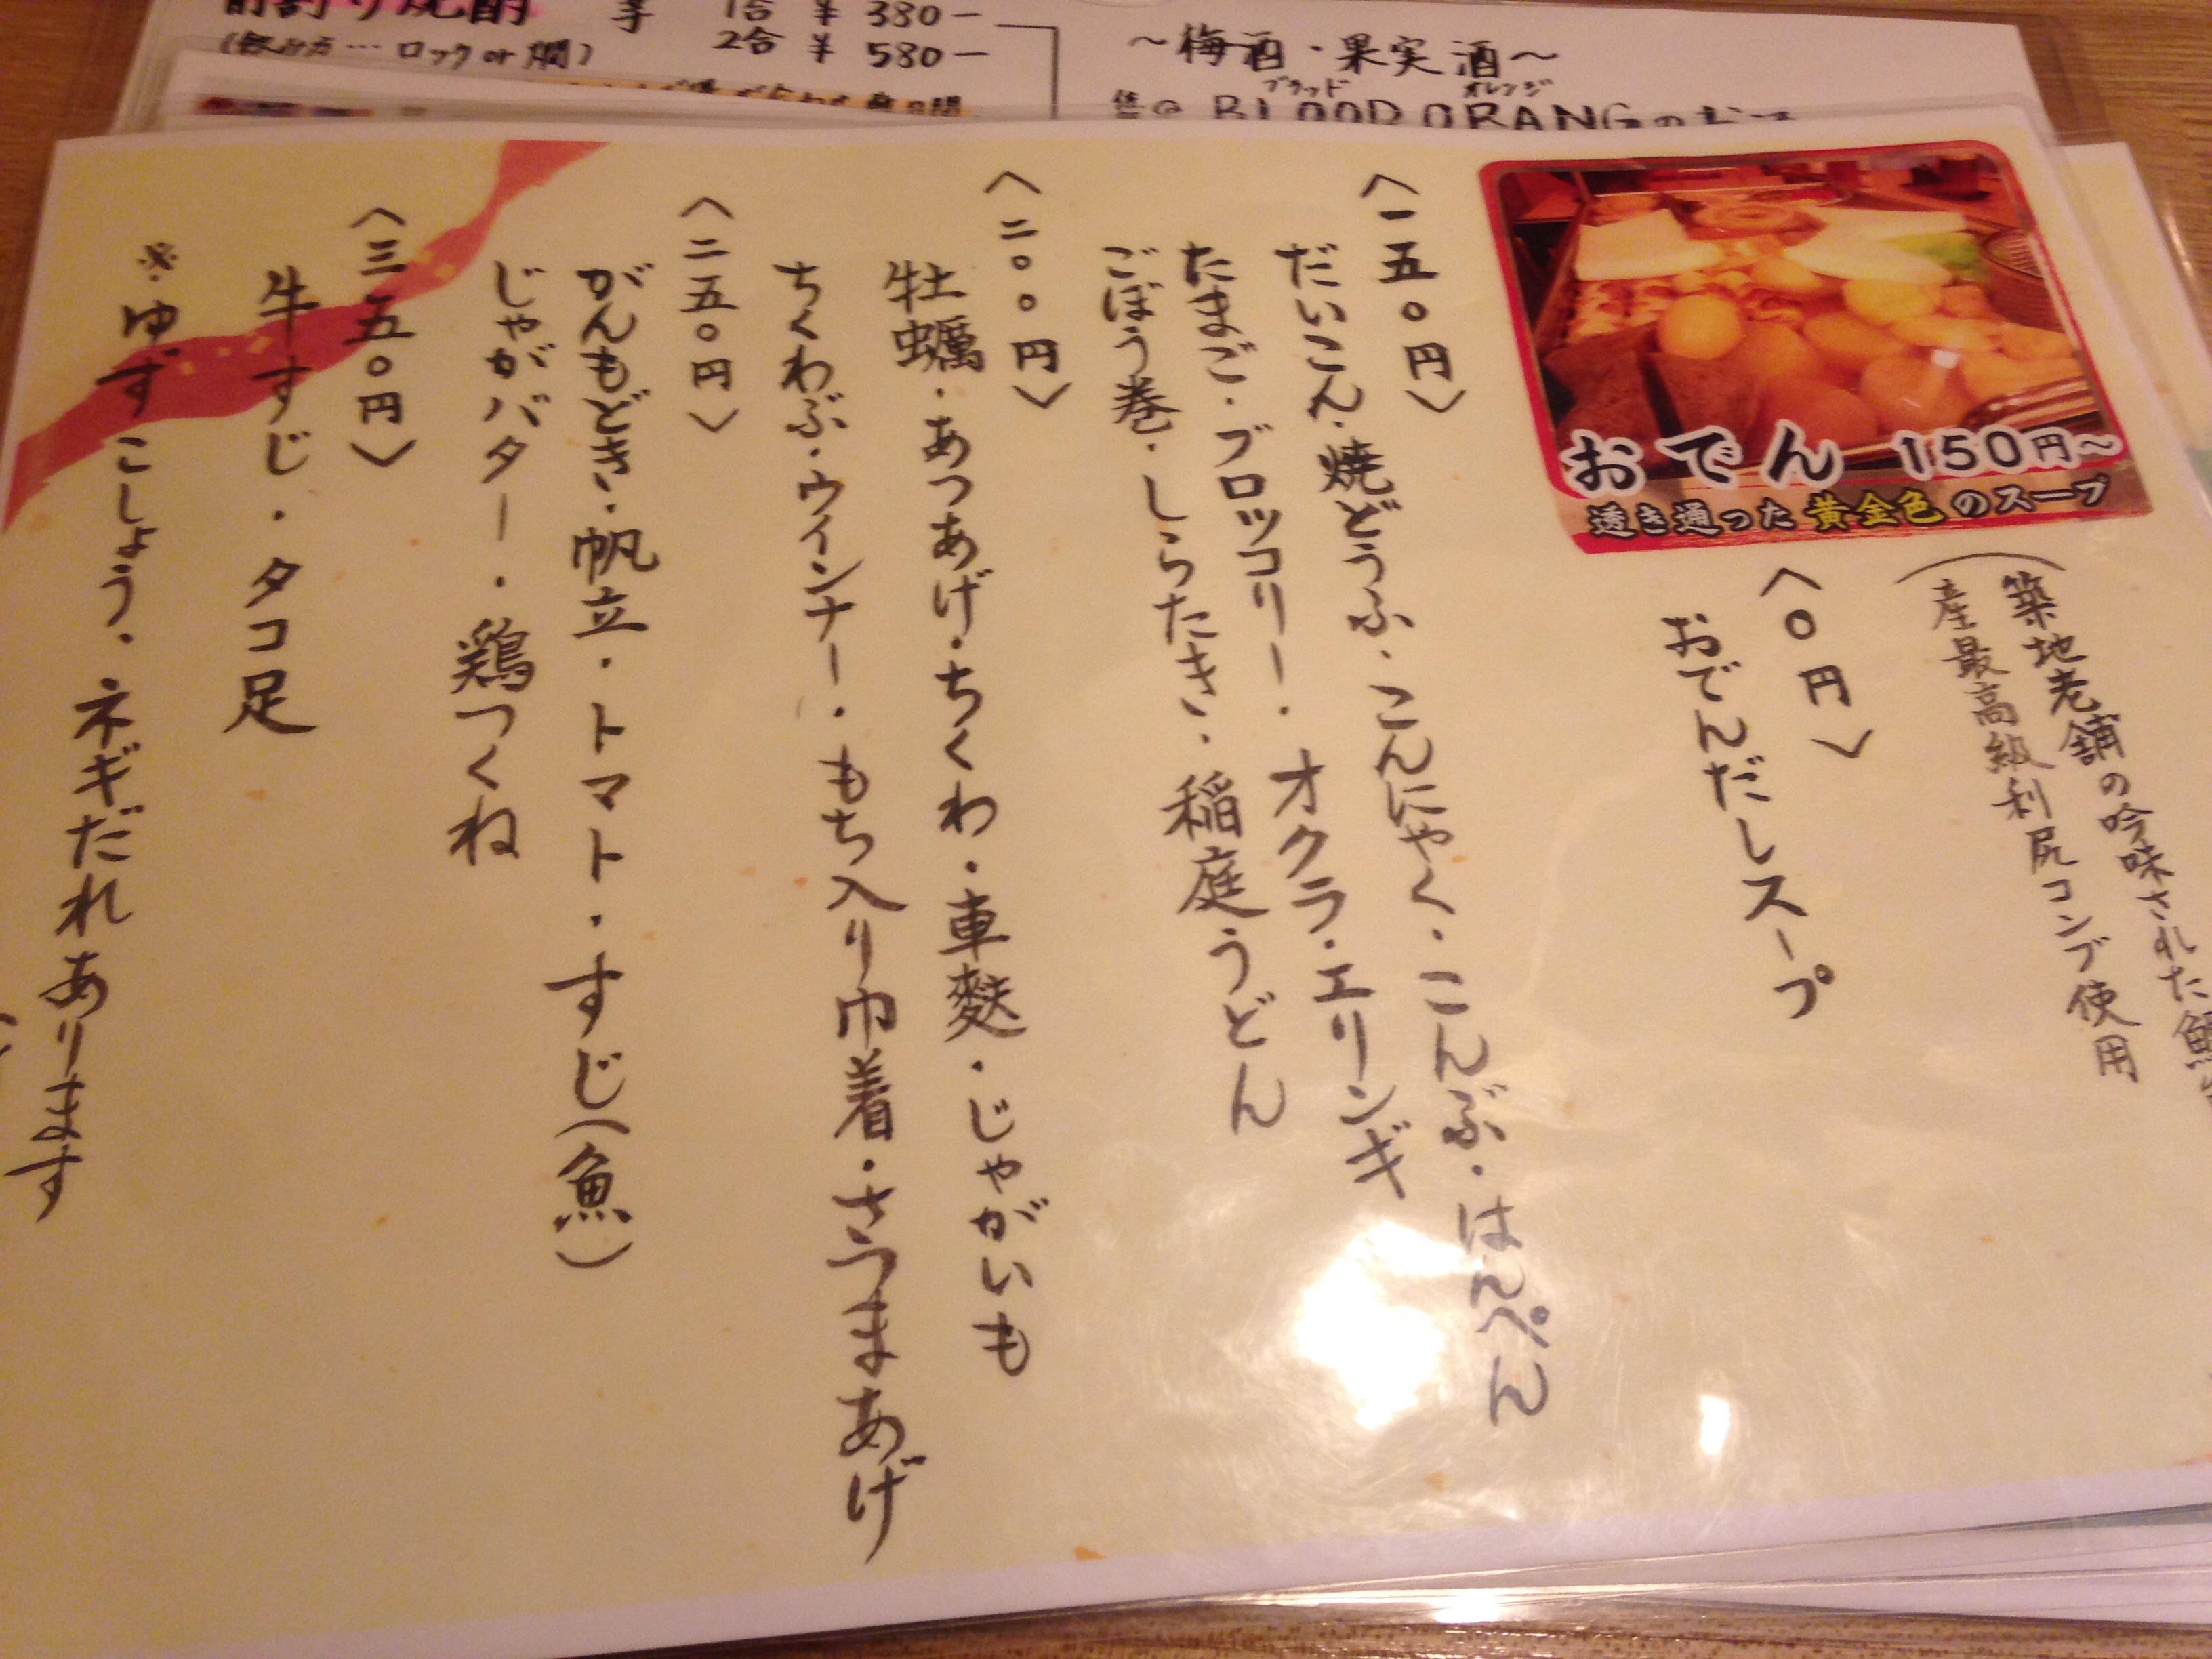 焼酎
芋
1合 ¥ 380-
2合 ¥ 580-
(飲み方…ロック or 燗)
~梅酒・果実酒~
ブラッド オレンジ
BLOOD ORANG
おでん 150円~
透き通った黄金色のスープ
築地老舗の吟味された
産最高級利尻コンブ使用
〈〇円〉
おでんだしスープ
〈一五〇円〉
だいこん・焼どうふ・こんにゃく・こんぶ・はんぺん
たまご・ブロッコリー・オクラ・エリンギ
ごぼう巻・しらたき・稲庭うどん
〈二〇〇円〉
牡蠣・あつあげ・ちくわ・車麩・じゃがいも
ちくわぶ・ウインナー・もち入り巾着・さつまあげ
〈二五〇円〉
がんもどき・帆立・トマト・すじ(魚)
じゃがバター・鶏つくね
〈三五〇円〉
牛すじ・タコ足
※ゆずこしょう・ネギだれあります